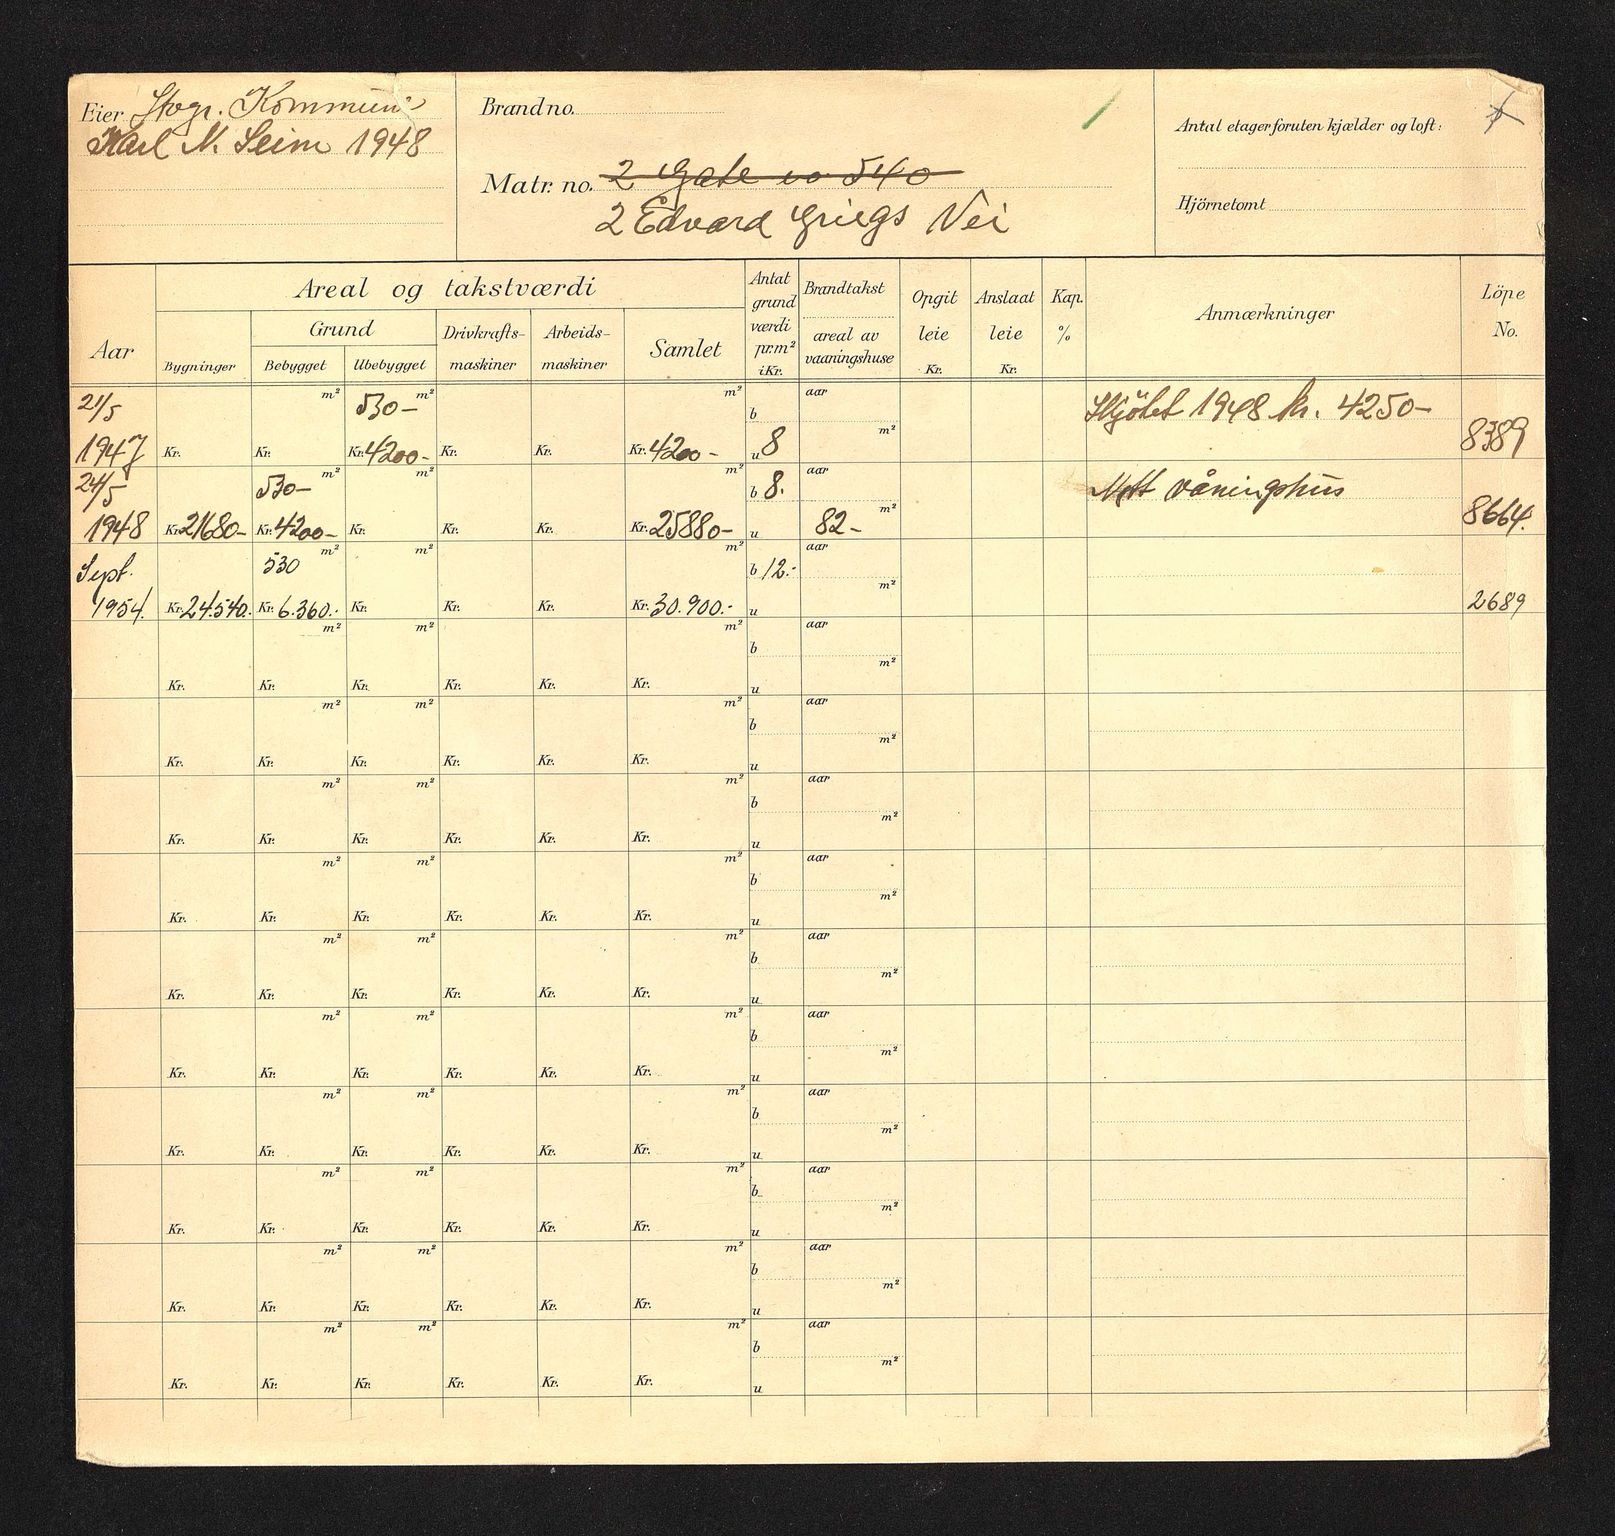 Eier Stvgr. Kommune
Karl N. Seim 1948
Brandno.
Matr. no. 2 Gate no 540
2 Edvard Griegs Vei
Antal etager foruten kjælder og loft:
Hjörnetomt
Aar
Areal og takstværdi
Bygninger
Grund
Bebygget
Ubebygget
Drivkrafts-
maskiner
Arbeids-
maskiner
Samlet
Antat
grund
værdi
pr. m²
i Kr.
Brandtakst
areal av
vaaningshuse
Opgit
leie
Kr.
Anslaat
leie
Kr.
Kap.
%
Anmærkninger
Löpe
No.
21/5 m² 530- m² m² b aar Skjötet 1948 kr. 4250-
1947 Kr. Kr. Kr. 4200- Kr. Kr. Kr. 4200- u 8 m² 8389
24/5 530- m² m² m² b 8. aar Nytt våningshus
1948 Kr. 21680- Kr. 4200- Kr. Kr. Kr. Kr. 25880- u 82- m² 8664.
Sept. 530 m² m² m² b 12.- aar
1954. Kr. 24.540.- Kr. 6.360.- Kr. Kr. Kr. Kr. 30.900.- u m² 2689
m² m² m² b aar
Kr. Kr. Kr. Kr. Kr. Kr. u m²
m² m² m² b aar
Kr. Kr. Kr. Kr. Kr. Kr. u m²
m² m² m² b aar
Kr. Kr. Kr. Kr. Kr. Kr. u m²
m² m² m² b aar
Kr. Kr. Kr. Kr. Kr. Kr. u m²
m² m² m² b aar
Kr. Kr. Kr. Kr. Kr. Kr. u m²
m² m² m² b aar
Kr. Kr. Kr. Kr. Kr. Kr. u m²
m² m² m² b aar
Kr. Kr. Kr. Kr. Kr. Kr. u m²
m² m² m² b aar
Kr. Kr. Kr. Kr. Kr. Kr. u m²
m² m² m² b aar
Kr. Kr. Kr. Kr. Kr. Kr. u m²
m² m² m² b aar
Kr. Kr. Kr. Kr. Kr. Kr. u m²